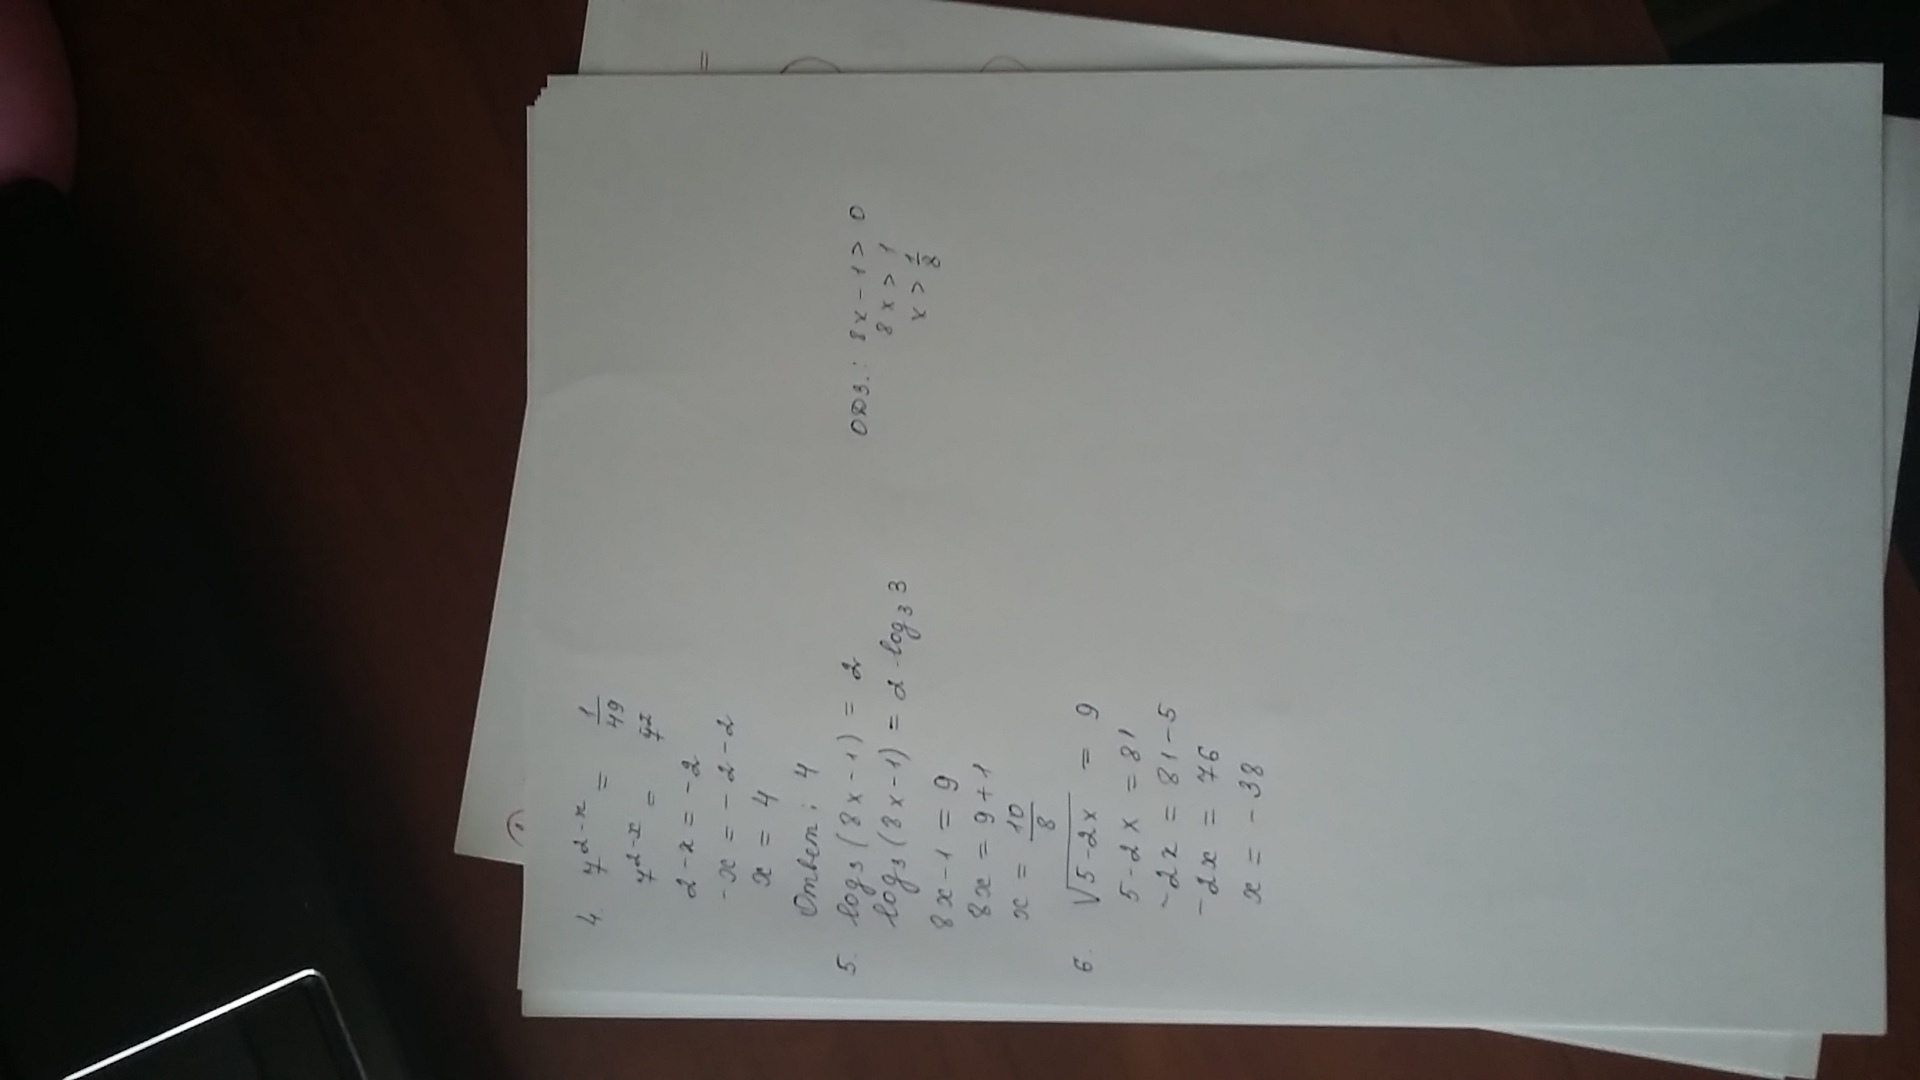 4. 7^{2-x} = \frac{1}{49}
7^{2-x} = 7^{-2}
2-x = -2
-x = -2-2
x = 4
Ответ: 4
5. log₃(8x-1) = 2 ОДЗ.: 8x-1>0
log₃(8x-1) = 2 log₃3 8x>1
8x-1 = 9 x>\frac{1}{8}
8x = 9+1
x = \frac{10}{8}
6. \sqrt{5-2x} = 9
5-2x = 81
-2x = 81-5
-2x = 76
x = -38